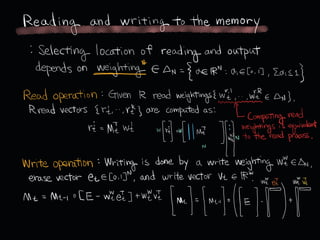 Reading and writing to the memory
: Selecting location of reading and output
depends on weighting* ∈ Δ_N = {α ∈ ℝ^N : α_i ∈ [0,1], Σα_i ≤ 1}
Read operation : Given R read weightings {w_t^{r,1}, ..., w_t^{r,R} ∈ Δ_N},
R read vectors {r_t^1, ..., r_t^R} are computed as:
Computing read
weightings is equivalent
to the read process.
r_t^i = M_t^T w_t^i
M_t^T
N
Write operation : Writing is done by a write weighting w_t^w ∈ Δ_N,
erase vector e_t ∈ [0,1]^W, and write vector v_t ∈ ℝ^W
M_t = M_{t-1} ∘ [E - w_t^w e_t^T] + w_t^w v_t^T
[M_t] = [M_{t-1}] ∘ [[E] - w_t^w e_t^T] + w_t^w v_t^T